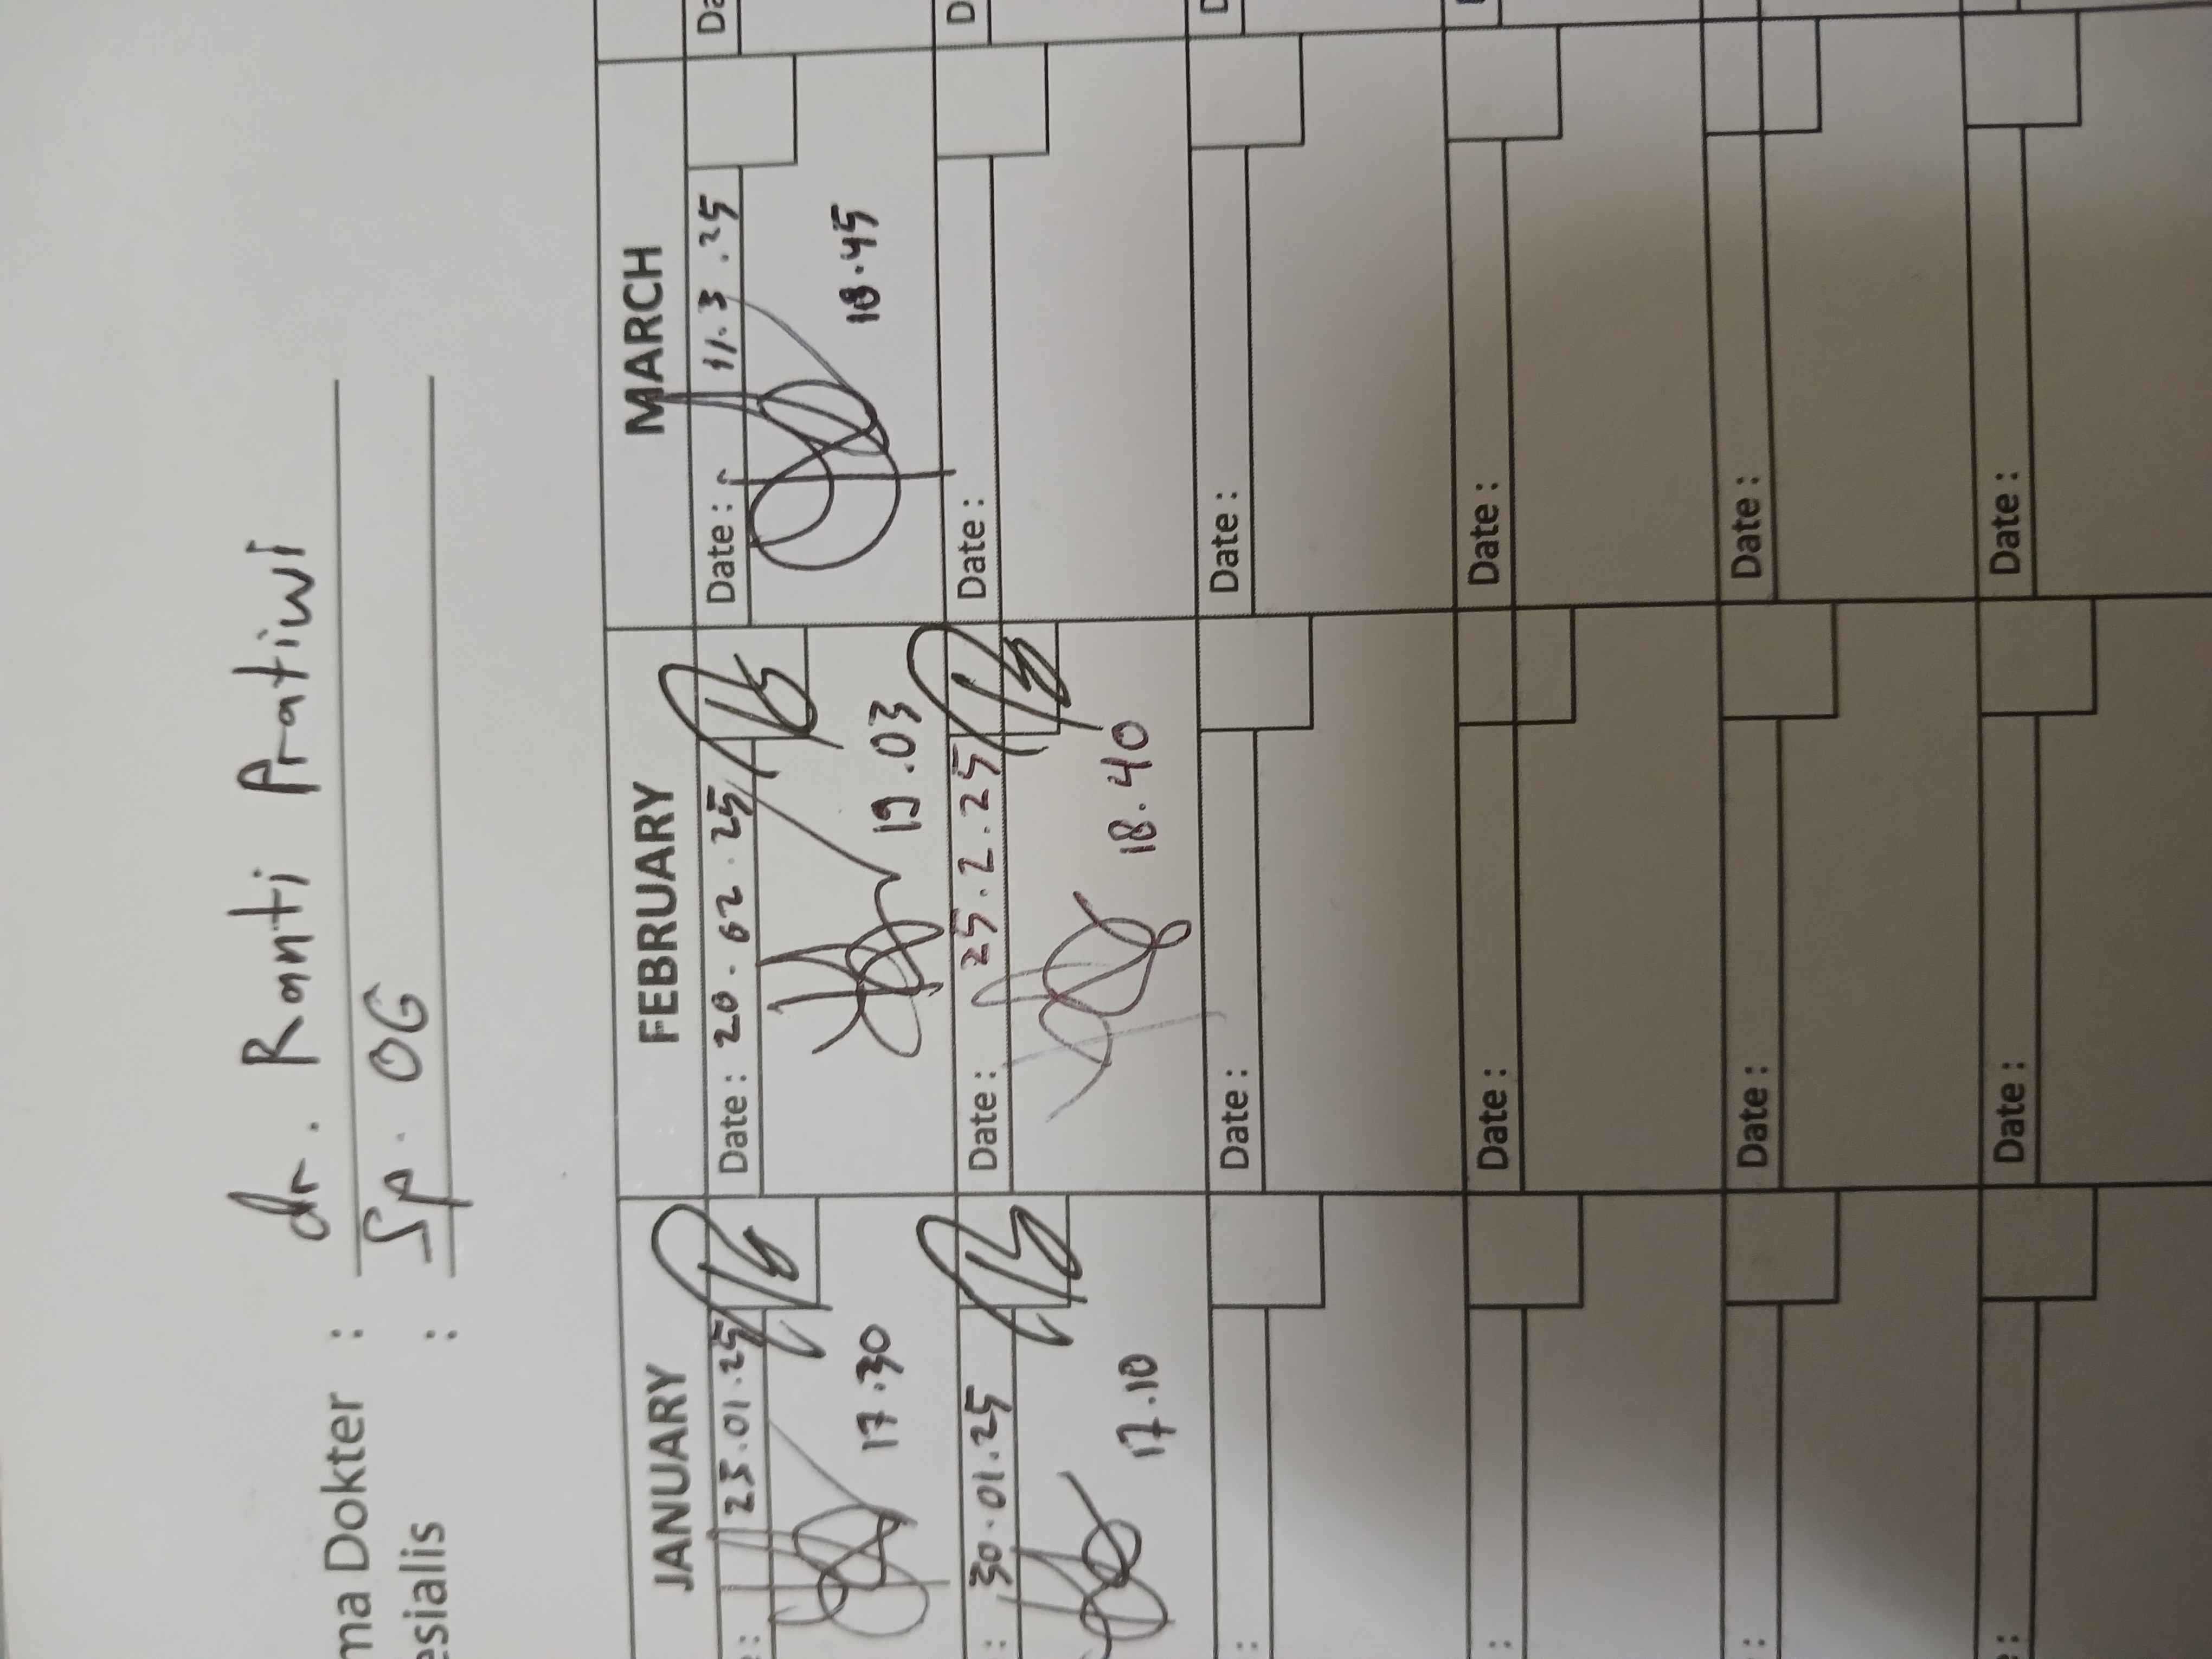 ma Dokter : dr. Ranti Pratiwi
esialis : Sp. OG
JANUARY FEBRUARY MARCH
: 23.01.25 Date : 20.02.25 Date : 11.3.25 Da
17.30 19.03 18.45
: 30.01.25 Date : 25.2.25 Date : D
17.10 18.40
: Date : Date : D
: Date : Date :
: Date : Date :
: Date : Date :